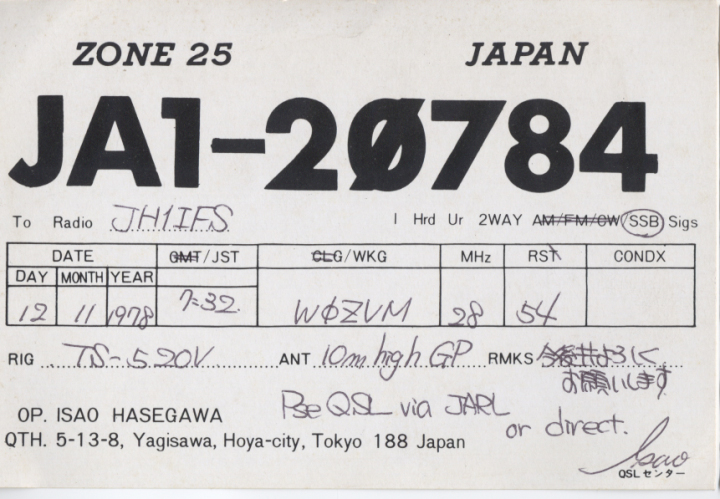 ZONE 25 JAPAN
JA1-20784
To Radio JH1IFS I Hrd Ur 2WAY AM/FM/CW/SSB Sigs
DATE GMT/JST CLG/WKG MHz RST CONDX
DAY MONTH YEAR
12 11 1978 7:32 WØZVM 28 54
RIG TS-520V ANT 10m high GP RMKS
お願いします
Pse QSL via JARL
or direct.
OP. ISAO HASEGAWA
QTH. 5-13-8, Yagisawa, Hoya-city, Tokyo 188 Japan
Isao
QSLセンター